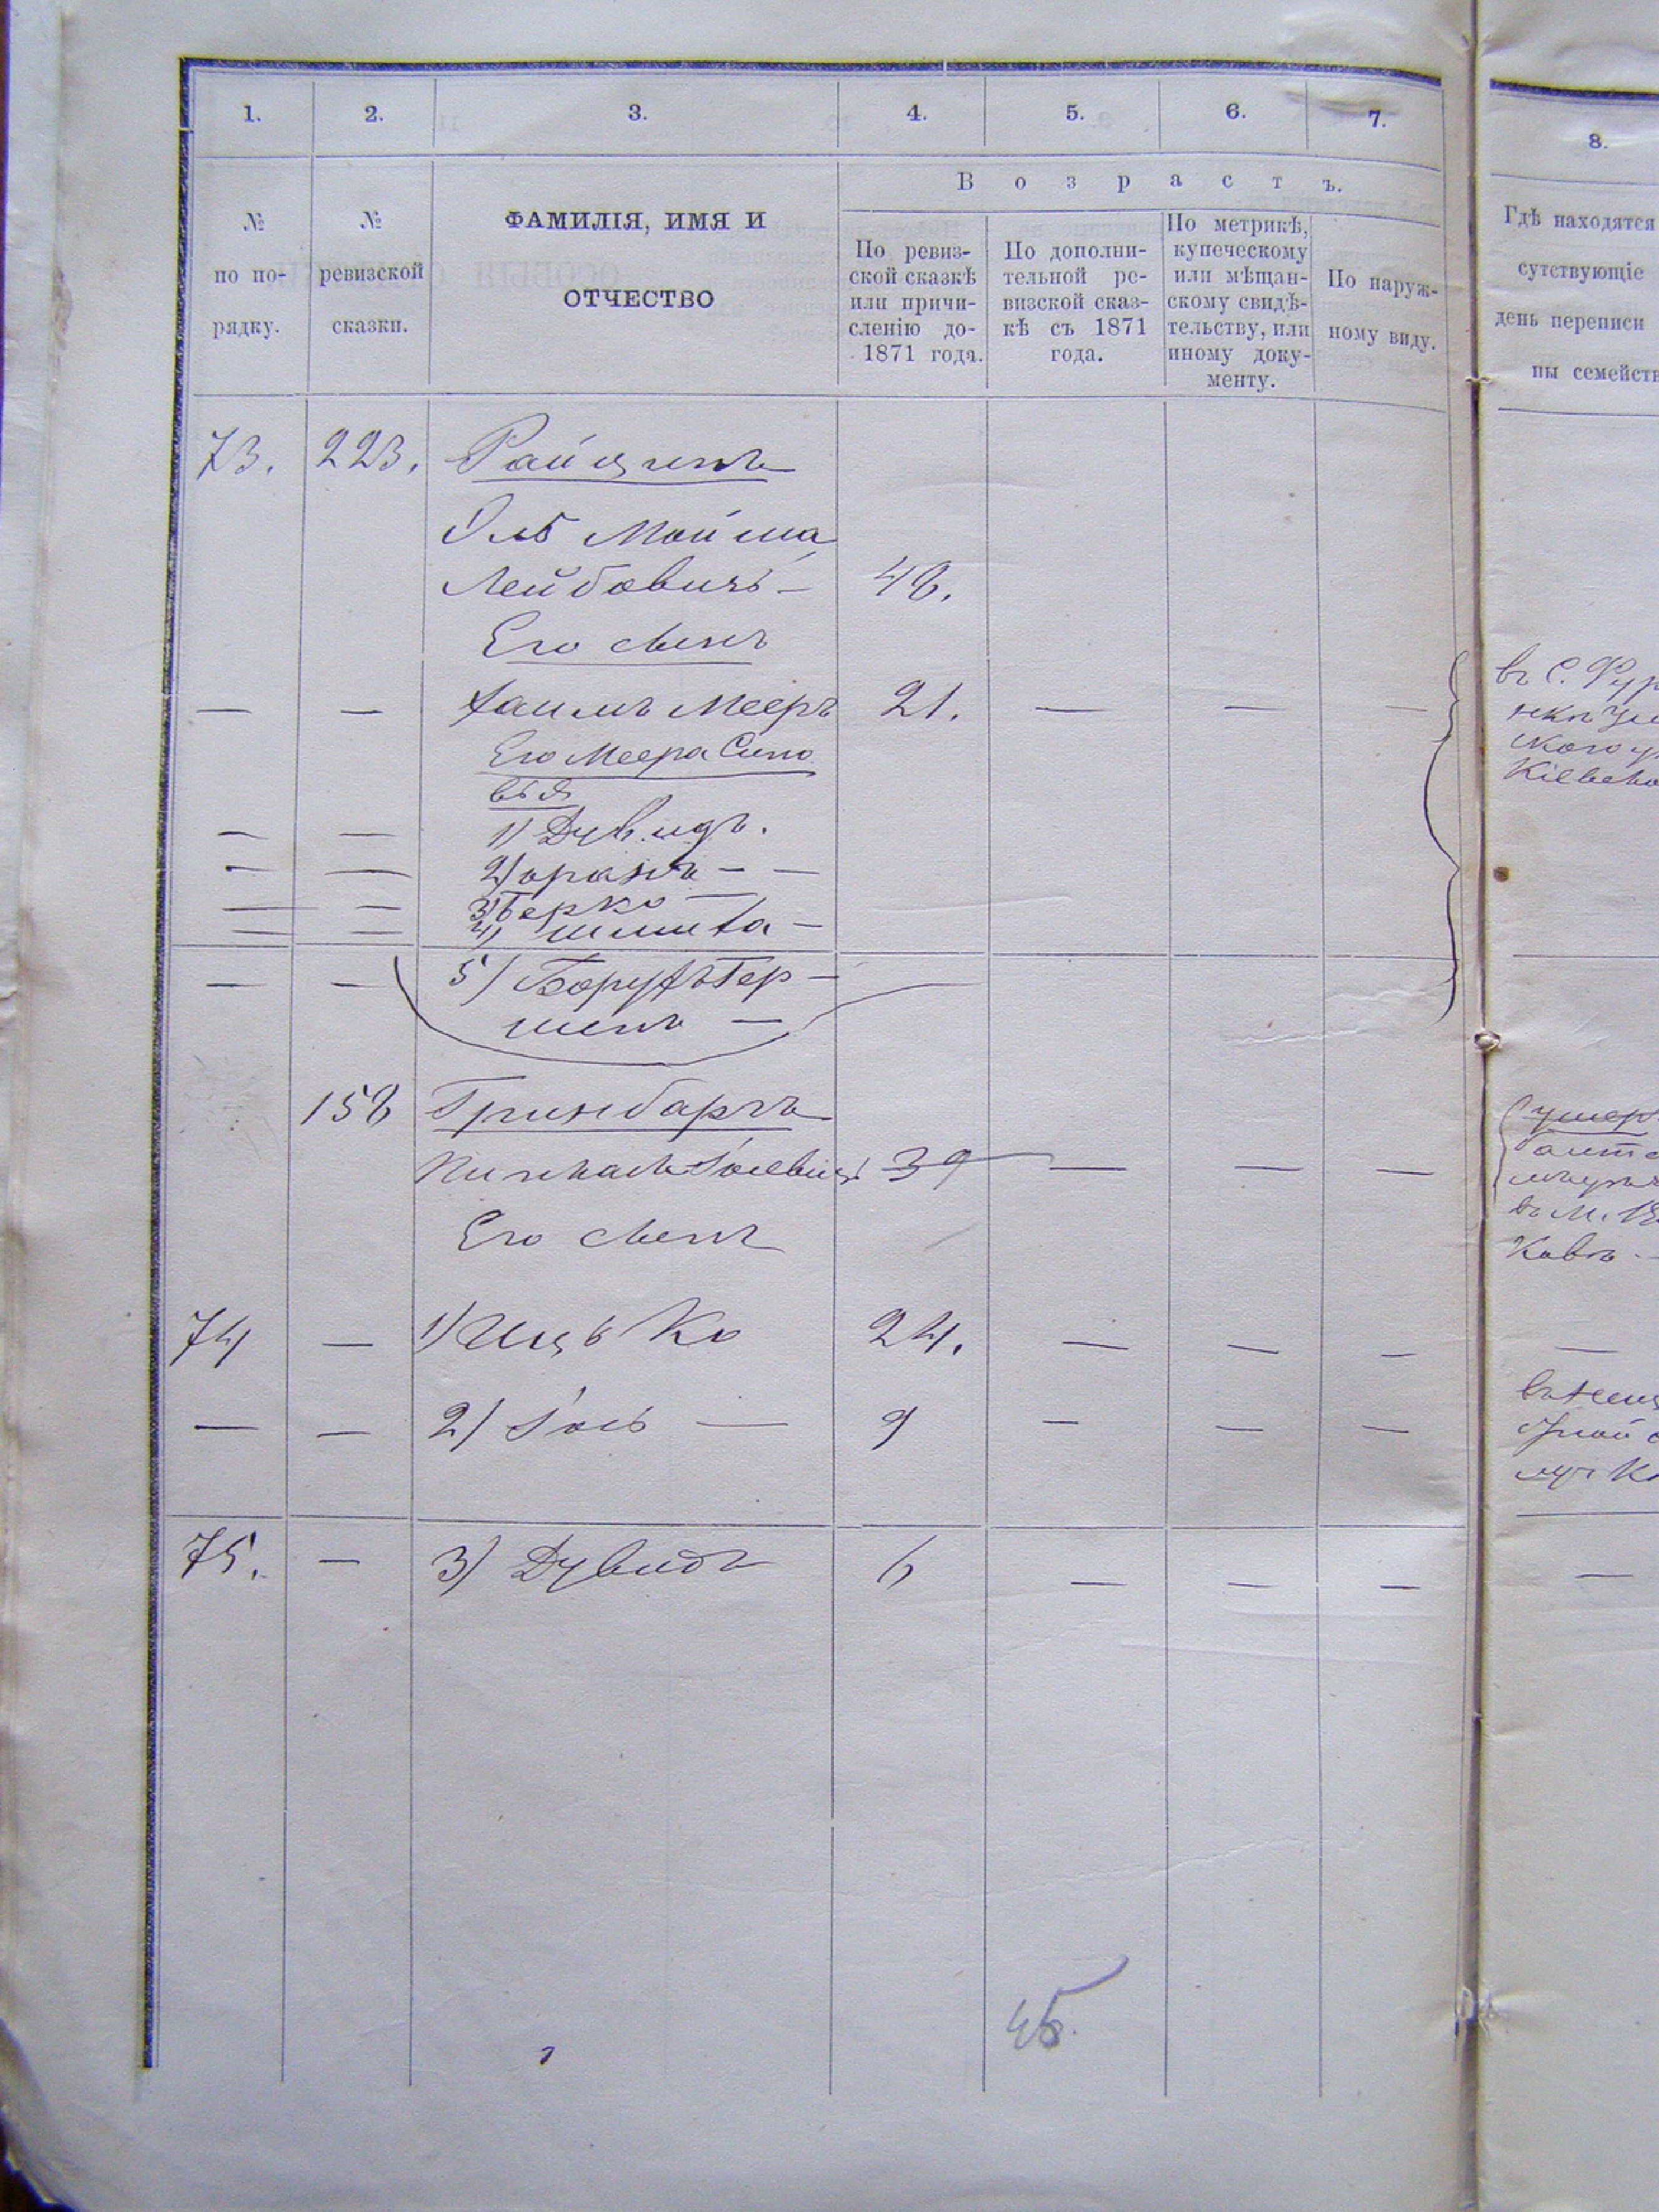 1. 2. 3. 4. 5. 6. 7.
8.
В о з р а с т ъ.
№ по по- рядку.
№ ревизской сказки.
ФАМИЛІЯ, ИМЯ И
ОТЧЕСТВО
По ревиз-
ской сказкѣ
или причи-
сленію до-
1871 года.
По дополни-
тельной ре-
визской сказ-
кѣ съ 1871
года.
По метрикѣ,
купеческому
или мѣщан-
скому свидѣ-
тельству, или
иному доку-
менту.
По наруж-
ному виду.
Гдѣ находятся
сутствующіе
день переписи
пы семейств
73. 223. Райцинъ
Мойша
Лейбовичъ - 48.
Его сынъ
— — Хаимъ Мееръ 21. — — —
Его Меера Сыно
вья
— — 1) Дувидъ.
— — 2) — —
— — 3) Берко —
— — 4) —
— — 5) Борухъ Гер —
шенъ —
158 Гринбаргъ
Іосевичъ 39 — — —
Его сынъ
74 — 1) Ицько 24. — — — —
— — 2) Іось — 9 — — —
75. — 3) Дувидъ 6 — — — —
въ с.
45.